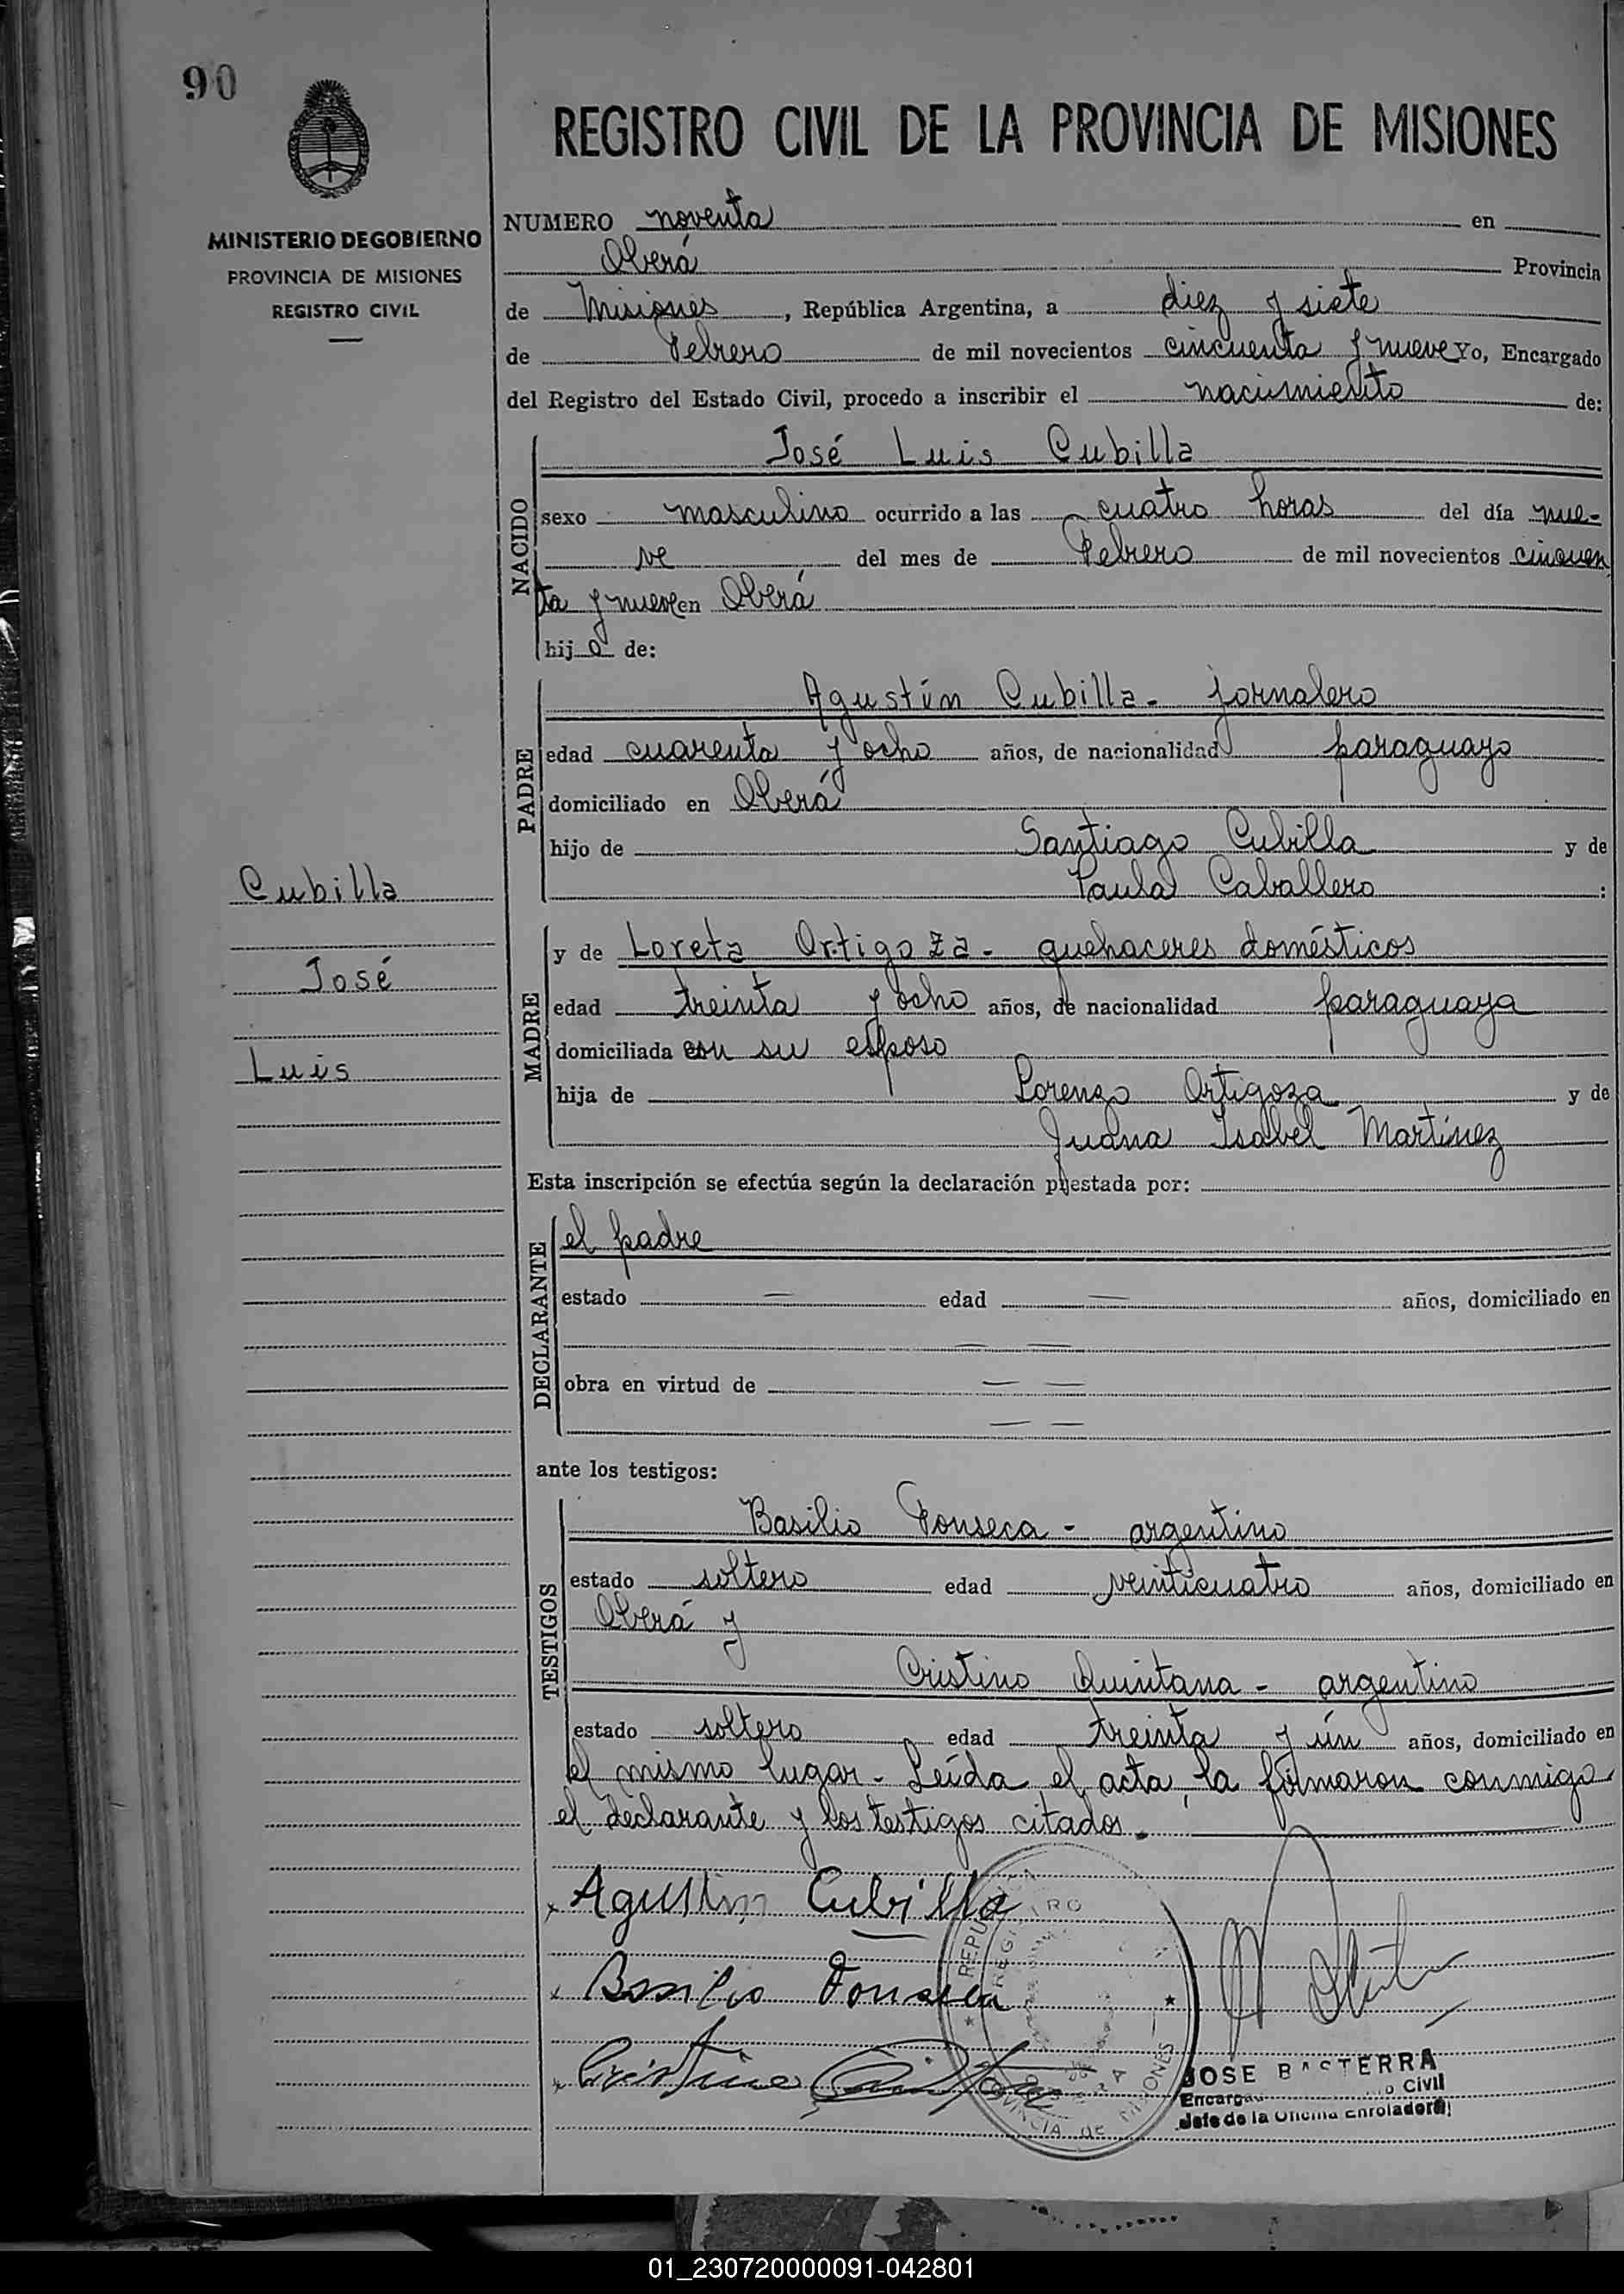 90
REGISTRO CIVIL DE LA PROVINCIA DE MISIONES
MINISTERIO DE GOBIERNO
PROVINCIA DE MISIONES
REGISTRO CIVIL
NUMERO noventa en
Oberá Provincia
de Misiones, República Argentina, a diez y siete
de Febrero de mil novecientos cincuenta y nueve Yo, Encargado
del Registro del Estado Civil, procedo a inscribir el nacimiento de:
NACIDO
José Luis Cubilla
sexo masculino ocurrido a las cuatro horas del día nue-
ve del mes de Febrero de mil novecientos cincuen
ta y nueve en Oberá
hijo de:
PADRE
Agustín Cubilla - jornalero
edad cuarenta y ocho años, de nacionalidad paraguayo
domiciliado en Oberá
hijo de Santiago Cubilla y de
Paula Caballero :
Cubilla
José
Luis
MADRE
y de Loreta Ortigoza - quehaceres domésticos
edad treinta y ocho años, de nacionalidad paraguaya
domiciliada con su esposo
hija de Lorenzo Ortigoza y de
Juana Isabel Martínez
Esta inscripción se efectúa según la declaración prestada por:
DECLARANTE
el padre
estado — edad — años, domiciliado en
— —
obra en virtud de — —
— —
ante los testigos:
TESTIGOS
Basilio Fonseca - argentino
estado soltero edad veinticuatro años, domiciliado en
Oberá y
Cristino Quintana - argentino
estado soltero edad treinta y ún años, domiciliado en
el mismo lugar - Leída el acta, la firmaron conmigo
el declarante y los testigos citados.
x Agustin Cubilla
x Basilio Fonseca
x Cristino Quintana
REPUBLICA
REGISTRO
PROVINCIA de MISIONES
JOSE BASTERRA
Civil
Jefe de la Oficina Enroladora
01_230720000091-042801